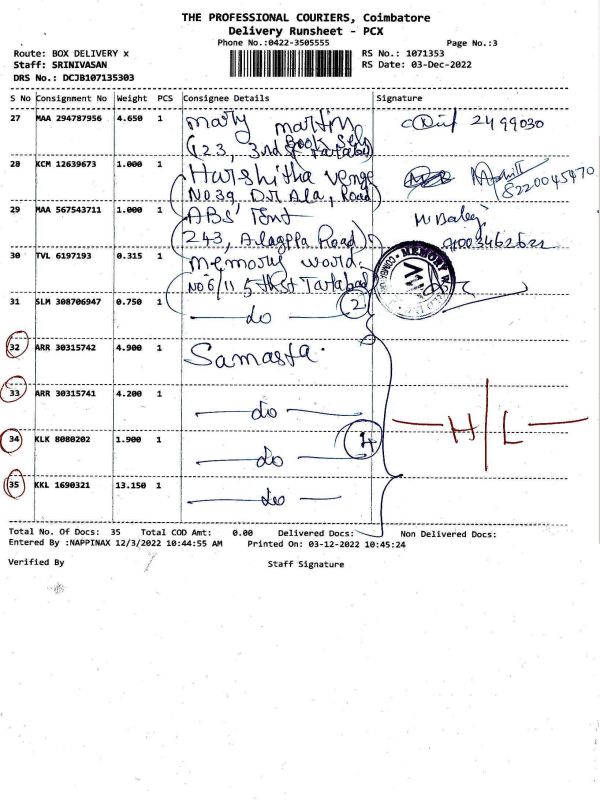 THE PROFESSIONAL COURIERS, Coimbatore
Delivery Runsheet - PCX
Phone No.:0422-3505555 Page No.:3
Route: BOX DELIVERY x RS No.: 1071353
Staff: SRINIVASAN RS Date: 03-Dec-2022
DRS No.: DCJB107135303
S No Consignment No Weight PCS Consignee Details Signature
27 MAA 294787956 4.650 1 mary martin 2499030
123, 3rd St Tatabad
28 KCM 12639673 1.000 1 Harshitha 8220045470
No 39, Road
29 MAA 567543711 1.000 1 ABS Tent
243, Alagppa Road
30 TVL 6197193 0.315 1 memory world. MEMORY
No 6/11 5th St Tatabad MW
31 SLM 308706947 0.750 1 do 2
32 ARR 30315742 4.900 1 Samasta.
33 ARR 30315741 4.200 1 do
34 KLK 8080202 1.900 1 do 4 H/L
35 KKL 1690321 13.150 1 do
Total No. Of Docs: 35 Total COD Amt: 0.00 Delivered Docs: Non Delivered Docs:
Entered By :NAPPINAX 12/3/2022 10:44:55 AM Printed On: 03-12-2022 10:45:24
Verified By Staff Signature